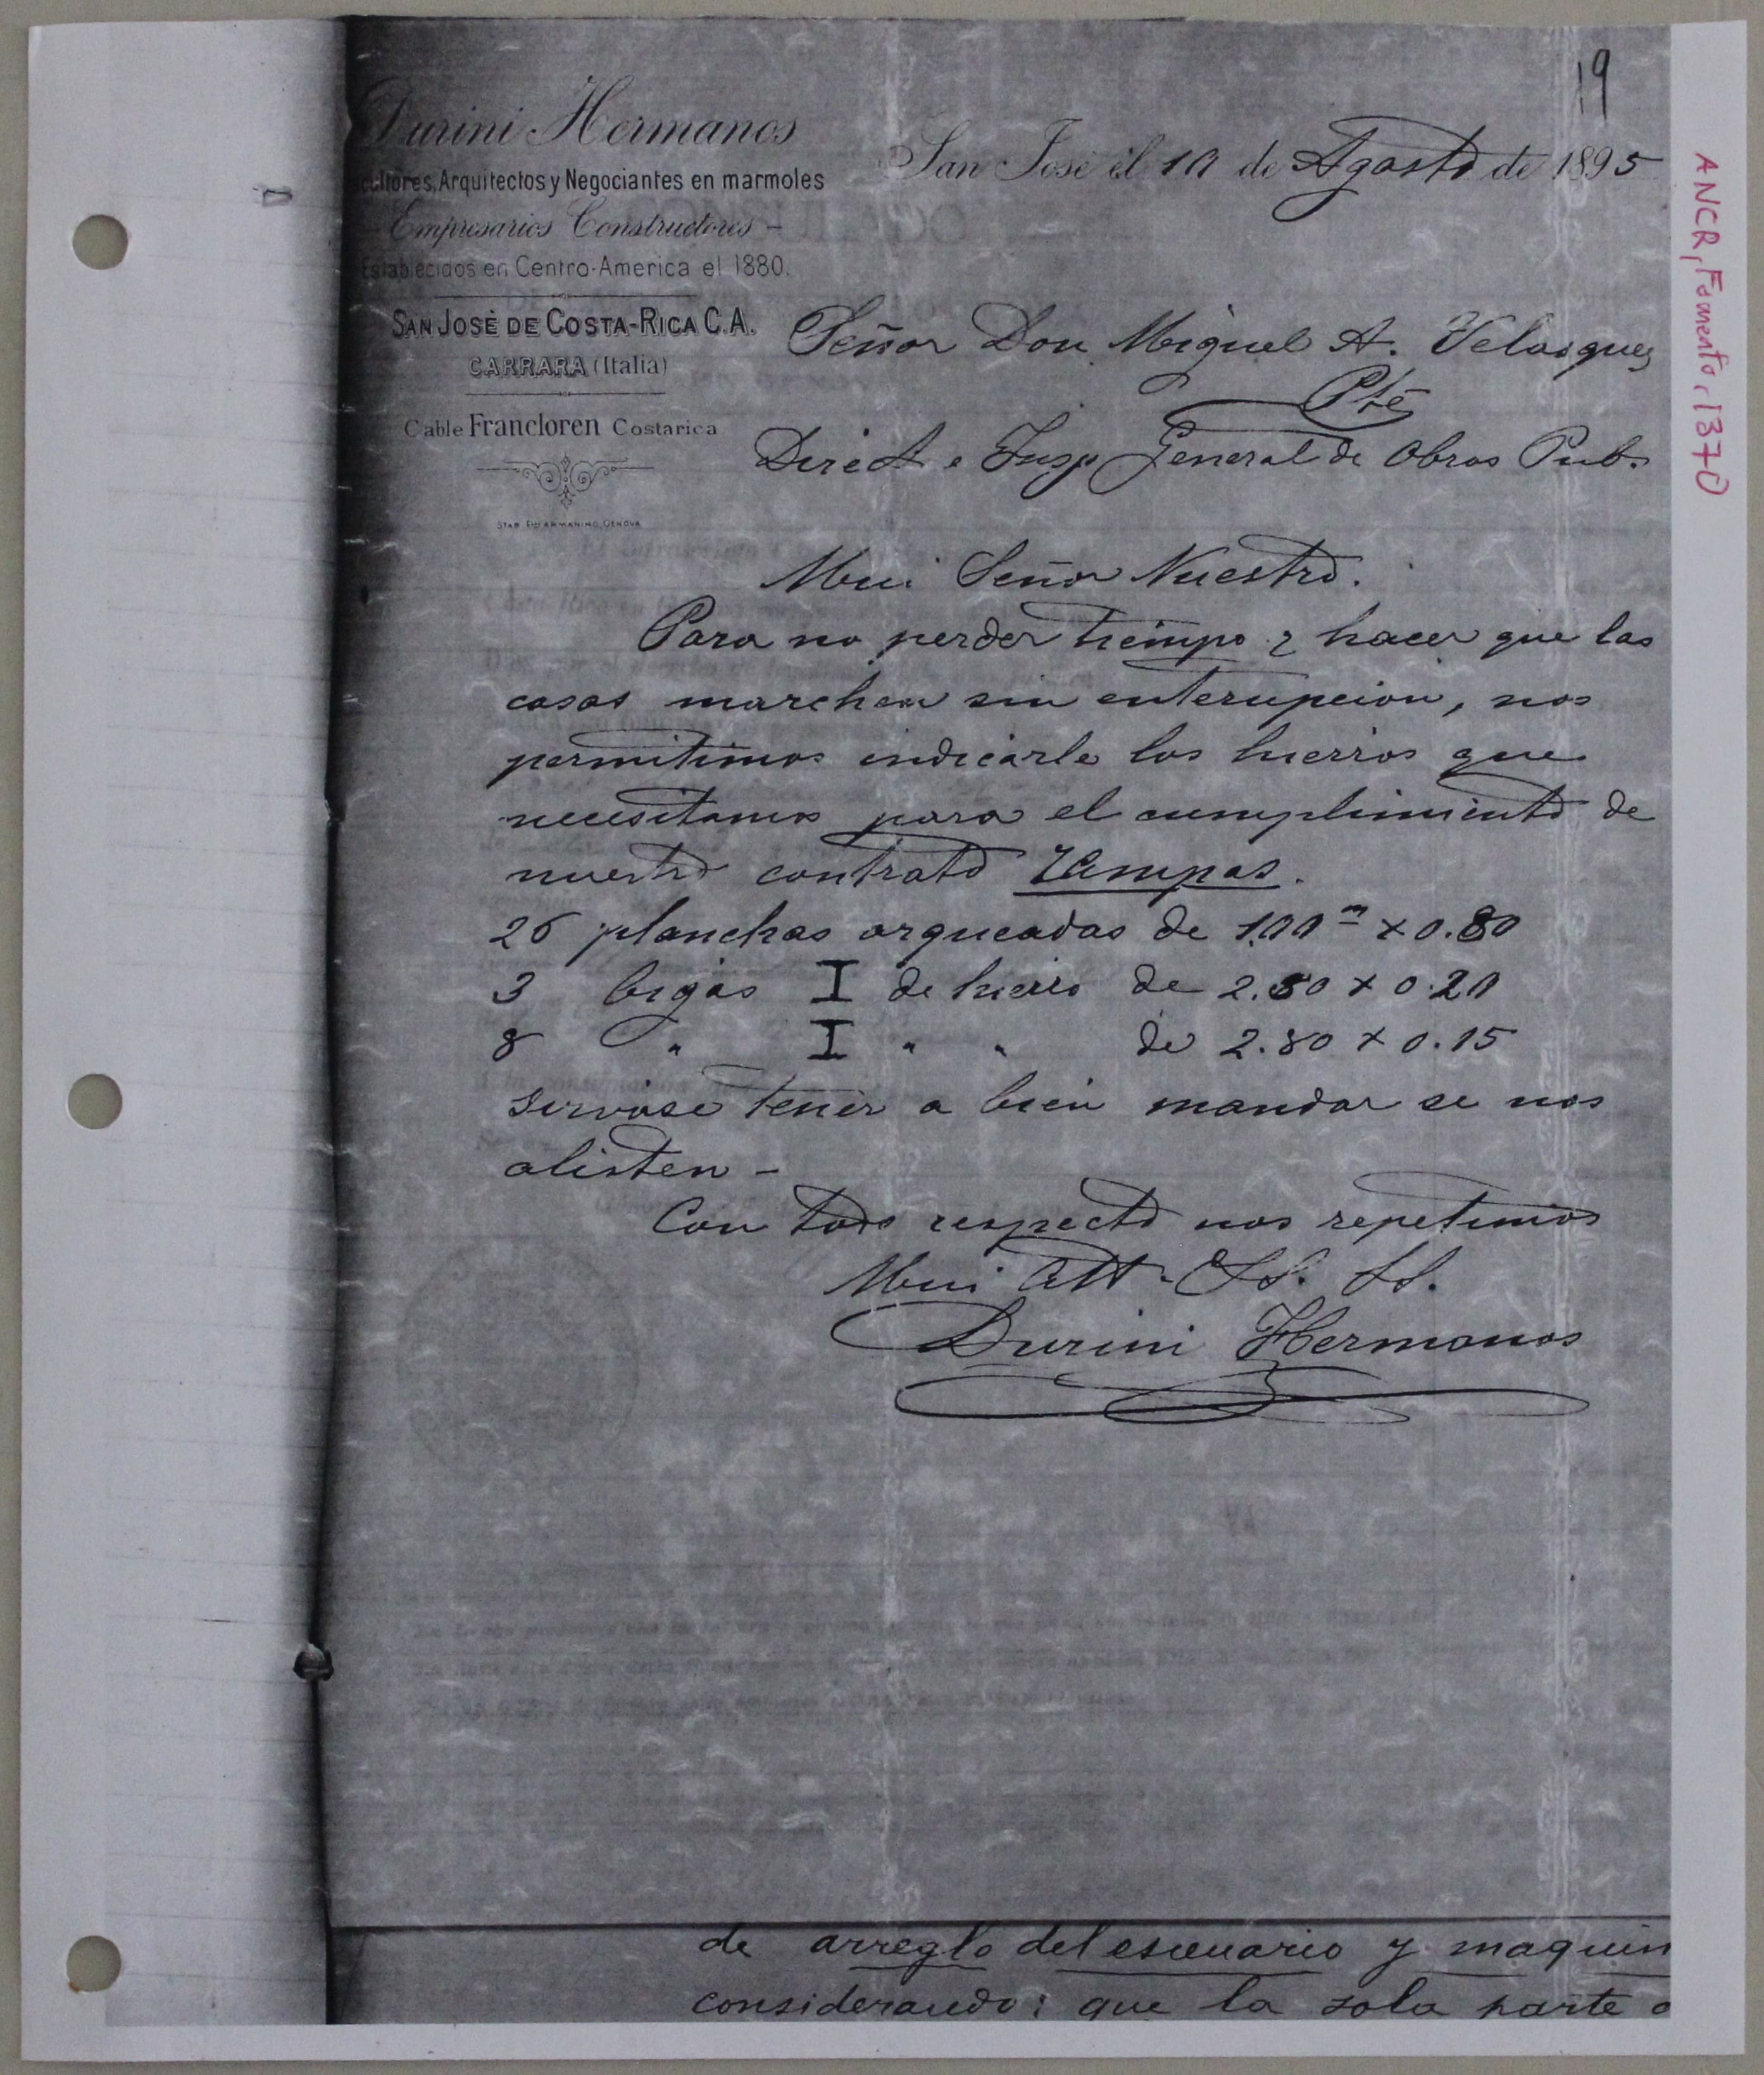 19
Durini Hermanos
Escultores, Arquitectos y Negociantes en marmoles
- Empresarios Constructores -
Establecidos en Centro-America el 1880.
SAN JOSÉ DE COSTA-RICA C.A.
CARRARA (Italia)
Cable Francloren Costarica
San José el 10 de Agosto de 1895
Señor Don Miguel A. Velasquez
Pte
Direct e Insp General de Obras Pub.
Mui Señor Nuestro.
Para no perder tiempo y hacer que las
cosas marchen sin enterupcion, nos
permitimos indicarle los hierros que
necesitamos para el cumplimiento de
nuestro contrato rampas.
26 planchas arqueadas de 1.00 m x 0.80
3 bigas I de hierro de 2.80 x 0.20
8 " I " " de 2.80 x 0.15
sirvase tener a bien mandar se nos
alisten -
Con todo respecto nos repetimos
Mui Att. SS. SS.
Durini Hermanos
de arreglo del escenario y maquin
considerando: que la sola parte
ANCR, Fomento, 1370